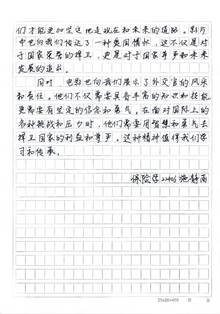 们才能更加坚定地走现在和未来的道路。影片
中也向我们传达了一种爱国情怀，这不仅是对
于国家荣誉的捍卫，更是对于国家尊严和未来
发展的追求。
同时，电影也向我们展示了外交官的风采
和责任，他们不仅需要具备丰富的知识和技能
更需要有坚定的信念和勇气，在面对国际上的
各种挑战和压力时，他们需要用智慧和勇气去
捍卫国家的利益和尊严，这种精神值得我们学
习和传承。
保险学 施静雨